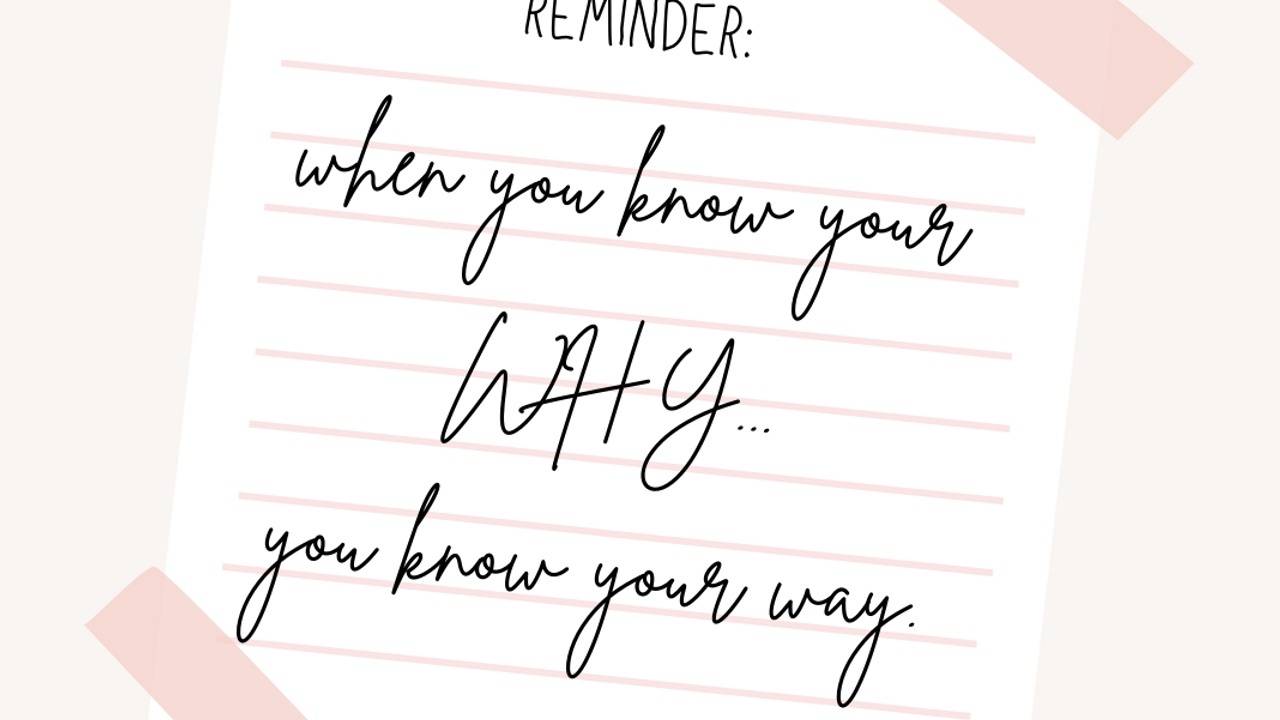 REMINDER:
when you know your
WHY...
you know your way.